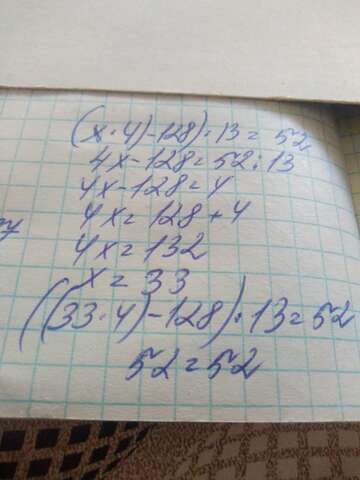 (x·4)-128)·13=52
4x-128=52:13
4x-128=4
4x=128+4
4x=132
x=33
((33·4)-128)·13=52
52=52